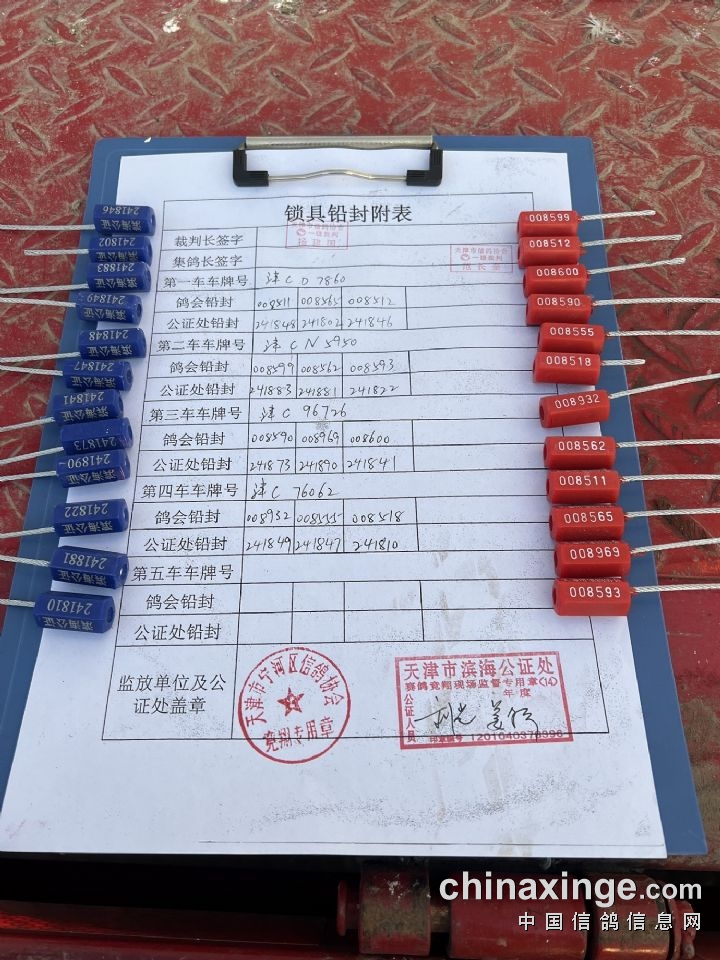 锁具铅封附表
裁判长签字
天津市信鸽协会
一级裁判
集鸽长签字
天津市信鸽协会
一级裁判
第一车车牌号 津C D 7860
鸽会铅封 008511 008565 008512
公证处铅封 241848 241802 241846
第二车车牌号 津C N 5950
鸽会铅封 008599 008562 008593
公证处铅封 241883 241881 241822
第三车车牌号 津C 96726
鸽会铅封 008590 008969 008600
公证处铅封 241873 241890 241841
第四车车牌号 津C 76062
鸽会铅封 008932 008555 008518
公证处铅封 241849 241847 241810
第五车车牌号
鸽会铅封
公证处铅封
监放单位及公
证处盖章
天津市宁河区信鸽协会
竞翔专用章
天津市滨海公证处
赛鸽竞翔现场监督专用章(14)
年度
公证人员
印章编号 1201040370396
滨海公证 241846
滨海公证 241802
滨海公证 241883
滨海公证 241849
滨海公证 241848
滨海公证 241847
滨海公证 241841
滨海公证 241873
滨海公证 241890
滨海公证 241822
滨海公证 241881
滨海公证 241810
008599
008512
008600
008590
008555
008518
008932
008562
008511
008565
008969
008593
chinaxinge.com
中国信鸽信息网